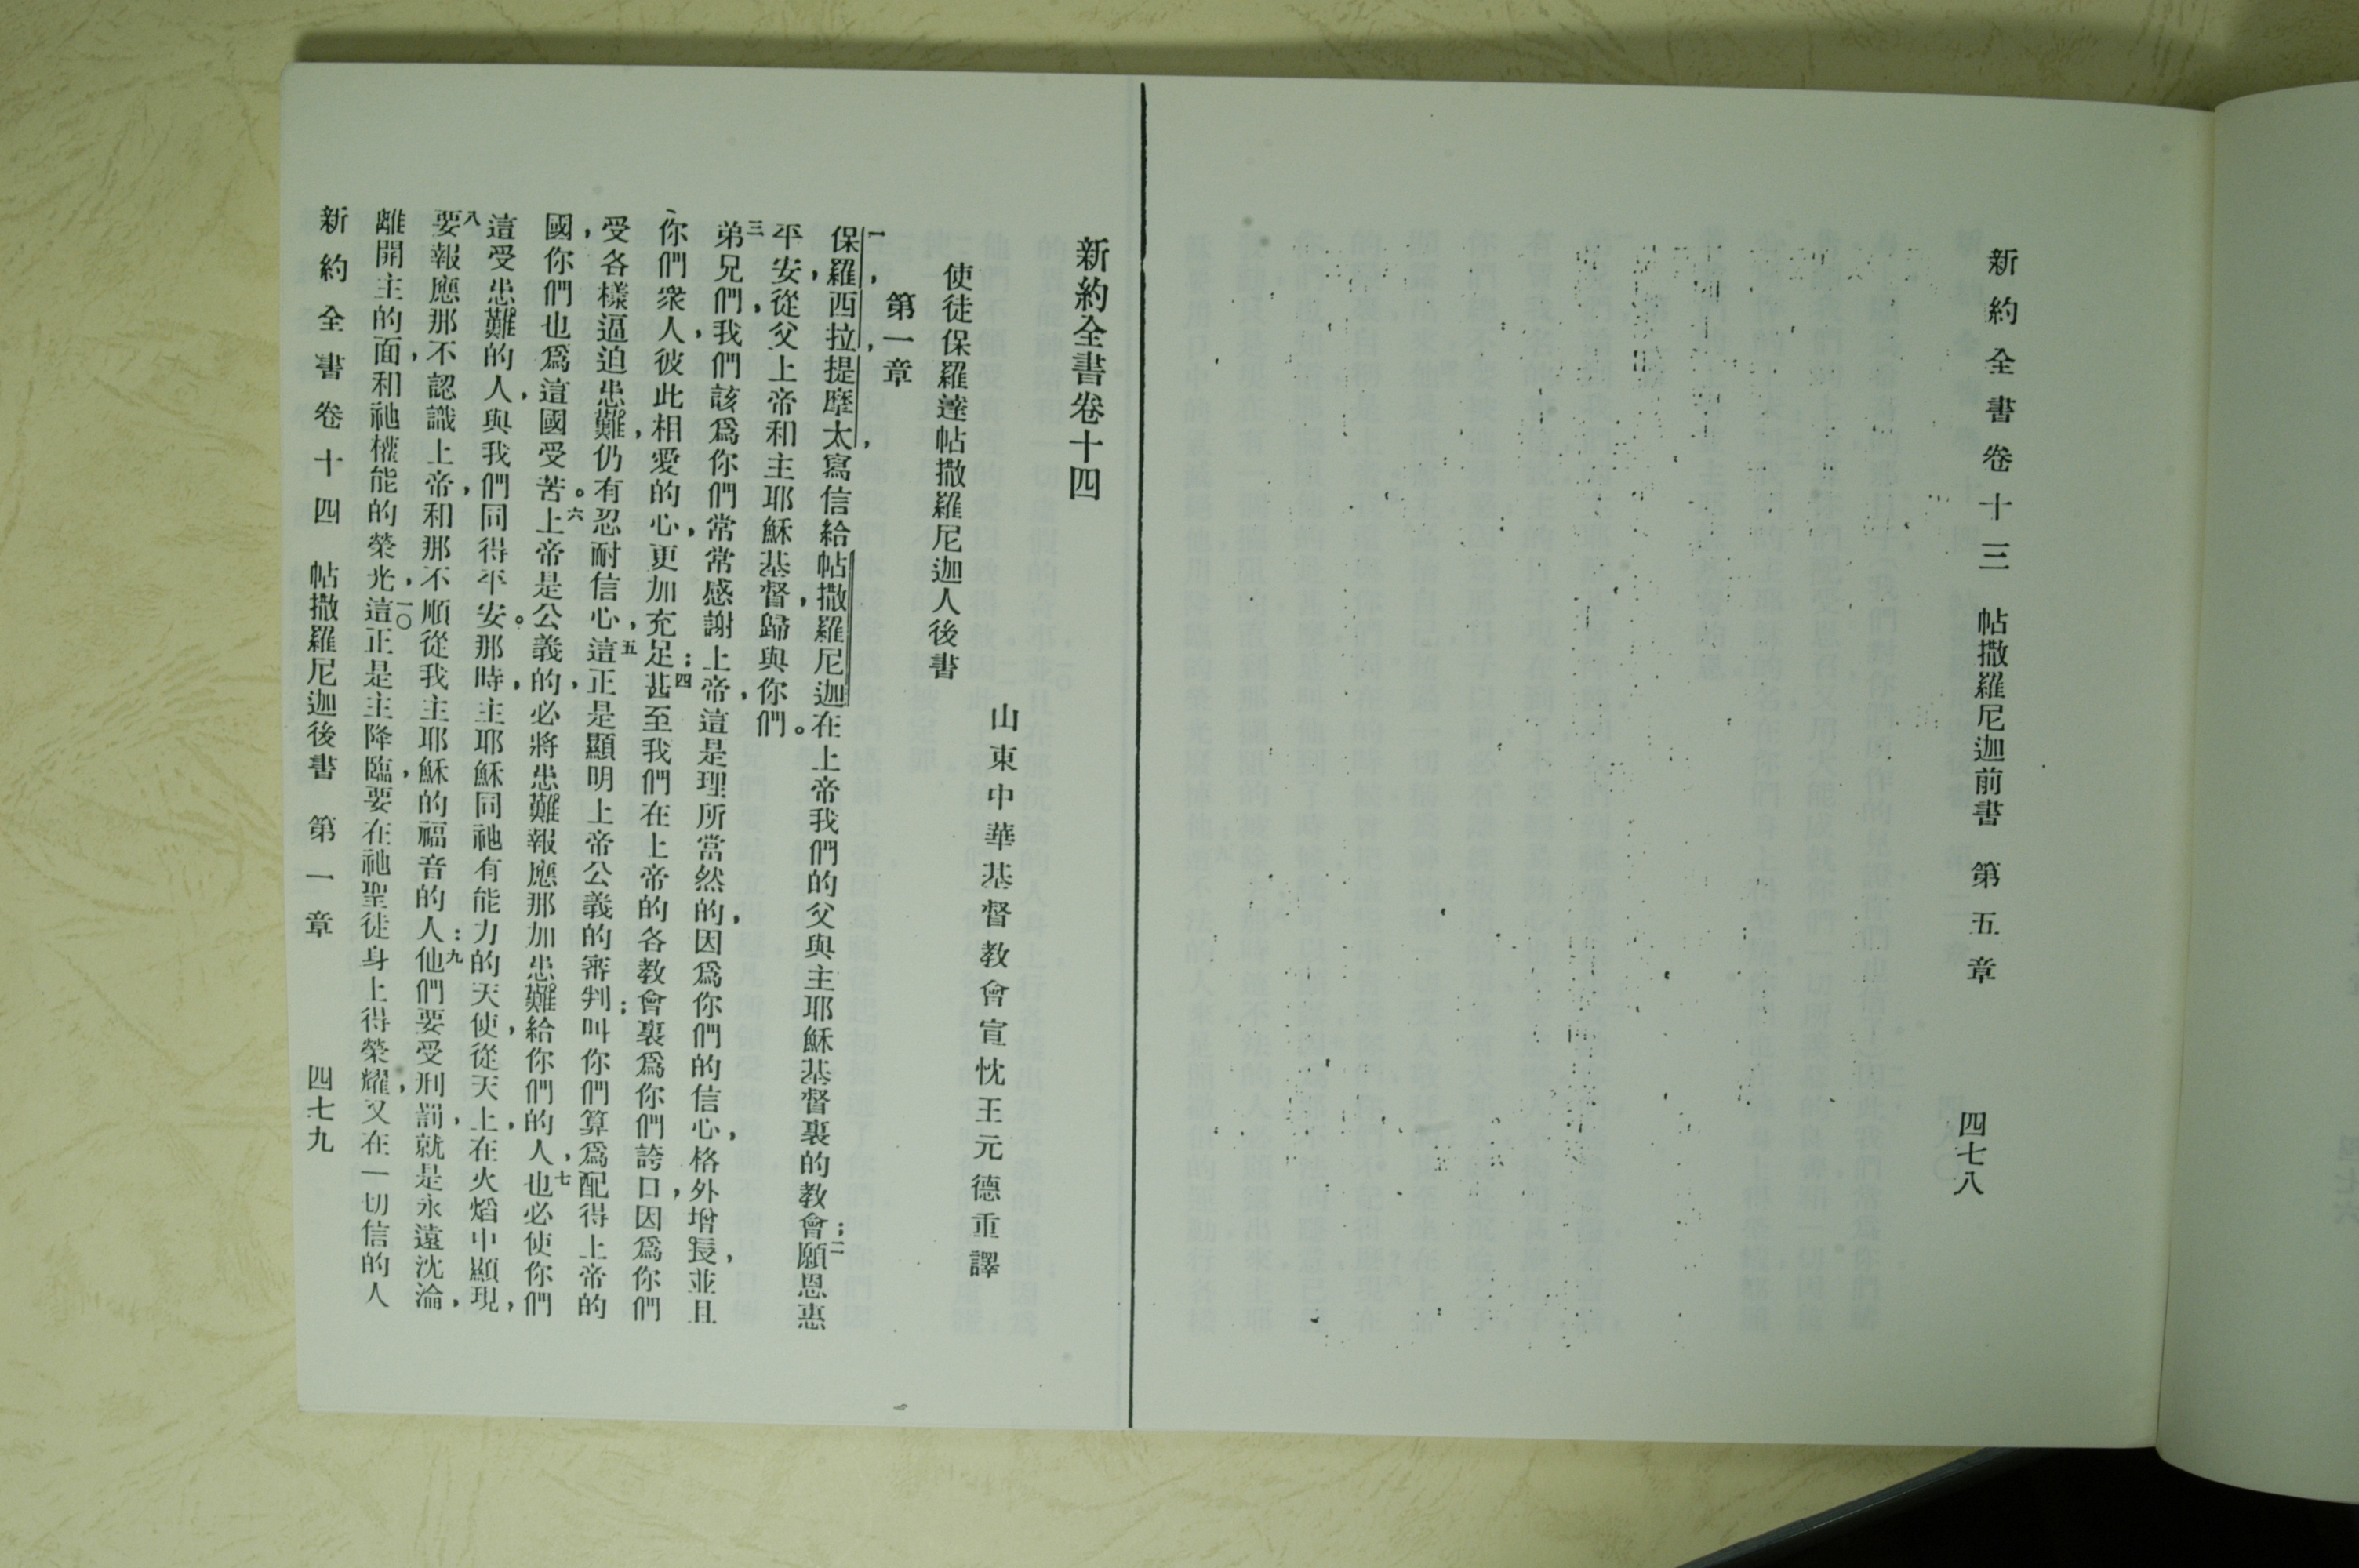 新約全書卷十三　帖撒羅尼迦前書　第五章　四七八
新約全書卷十四
山東中華基督教會宣忱王元德重譯
使徒保羅達帖撒羅尼迦人後書
第一章
一保羅，西拉，提摩太，寫信給帖撒羅尼迦在上帝我們的父與主耶穌基督裏的教會；二願恩惠
平安，從父上帝和主耶穌基督，歸與你們。
三弟兄們，我們該爲你們常常感謝上帝，這是理所當然的，因爲你們的信心，格外增長，並且
你們衆人，彼此相愛的心，更加充足；四甚至我們在上帝的各教會裏爲你們誇口，因爲你們
受各樣逼迫患難，仍有忍耐信心，五這正是顯明上帝公義的審判；叫你們算爲配得上帝的
國，你們也爲這國受苦。六上帝是公義的，必將患難報應那加患難給你們的人，七也必使你們
這受患難的人，與我們同得平安。那時，主耶穌同祂有能力的天使，從天上，在火焰中顯現，
八要報應那不認識上帝，和那不順從我主耶穌的福音的人：九他們要受刑罰，就是永遠沈淪，
離開主的面，和祂權能的榮光，一〇這正是主降臨，要在祂聖徒身上得榮耀，又在一切信的人
新約全書卷十四　帖撒羅尼迦後書　第一章　四七九